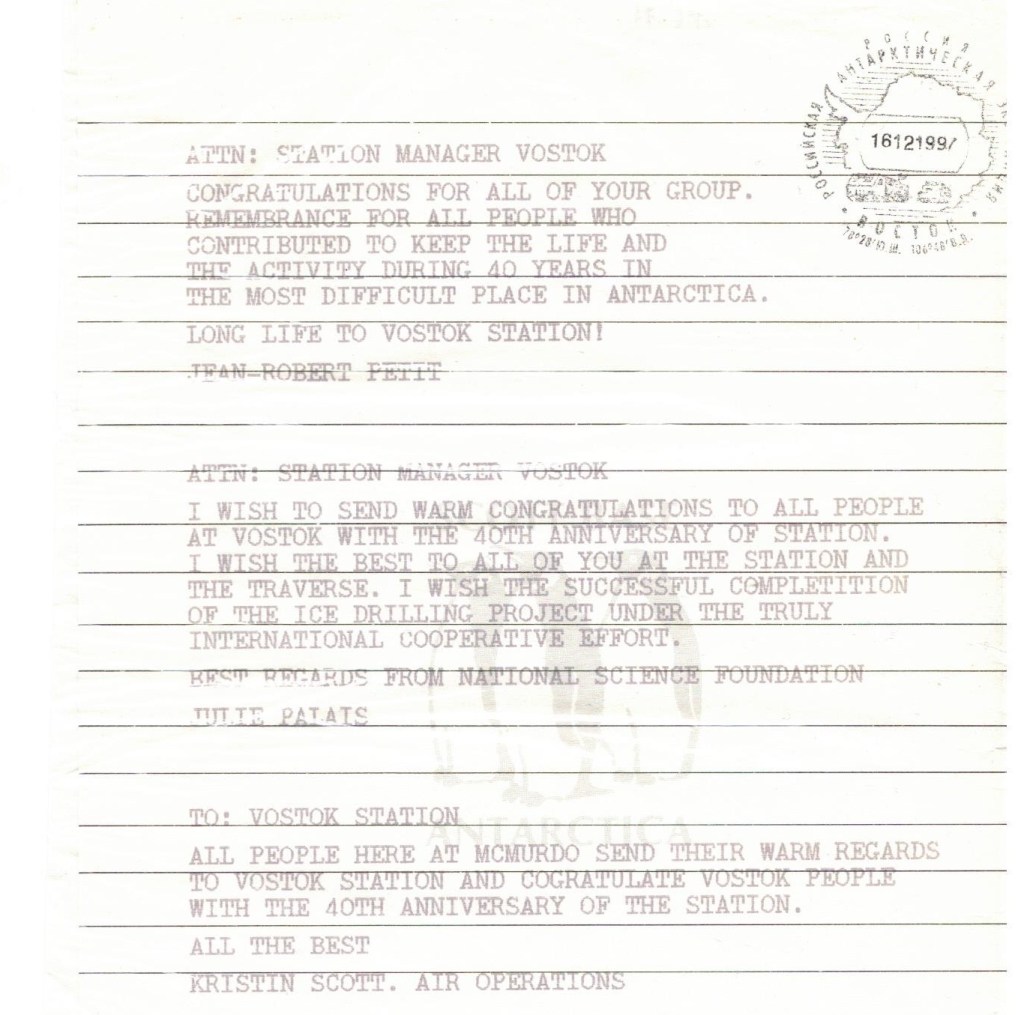 РОССИЯ
РОССИЙСКАЯ АНТАРКТИЧЕСКАЯ
16121997
ВОСТОК
78°28'Ю.Ш. 106°48'В.Д.
ATTN: STATION MANAGER VOSTOK
CONGRATULATIONS FOR ALL OF YOUR GROUP.
REMEMBRANCE FOR ALL PEOPLE WHO
CONTRIBUTED TO KEEP THE LIFE AND
THE ACTIVITY DURING 40 YEARS IN
THE MOST DIFFICULT PLACE IN ANTARCTICA.
LONG LIFE TO VOSTOK STATION!
JEAN-ROBERT PETIT
ATTN: STATION MANAGER VOSTOK
I WISH TO SEND WARM CONGRATULATIONS TO ALL PEOPLE
AT VOSTOK WITH THE 40TH ANNIVERSARY OF STATION.
I WISH THE BEST TO ALL OF YOU AT THE STATION AND
THE TRAVERSE. I WISH THE SUCCESSFUL COMPLETITION
OF THE ICE DRILLING PROJECT UNDER THE TRULY
INTERNATIONAL COOPERATIVE EFFORT.
BEST REGARDS FROM NATIONAL SCIENCE FOUNDATION
JULIE PALAIS
TO: VOSTOK STATION
ANTARCTICA
ALL PEOPLE HERE AT MCMURDO SEND THEIR WARM REGARDS
TO VOSTOK STATION AND COGRATULATE VOSTOK PEOPLE
WITH THE 40TH ANNIVERSARY OF THE STATION.
ALL THE BEST
KRISTIN SCOTT. AIR OPERATIONS